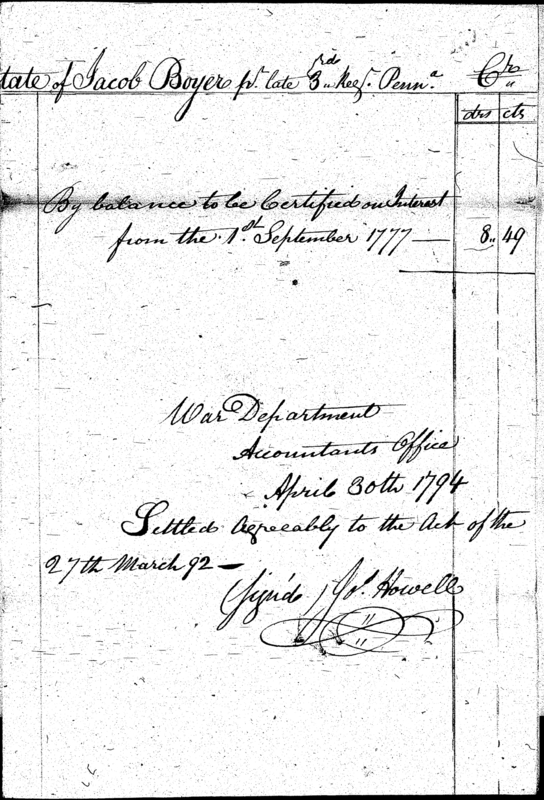 tate of Jacob Boyer pr. late 3.rd Reg.t Penn.a Cr
drs cts
By balance to be Certified on Interest
from the 1.st September 1777 — 8.. 49
War Department
Accountants Office
April 30th 1794
Settled agreeably to the Act of the
27th March 92 —
(Sign'd) Jos. Howell